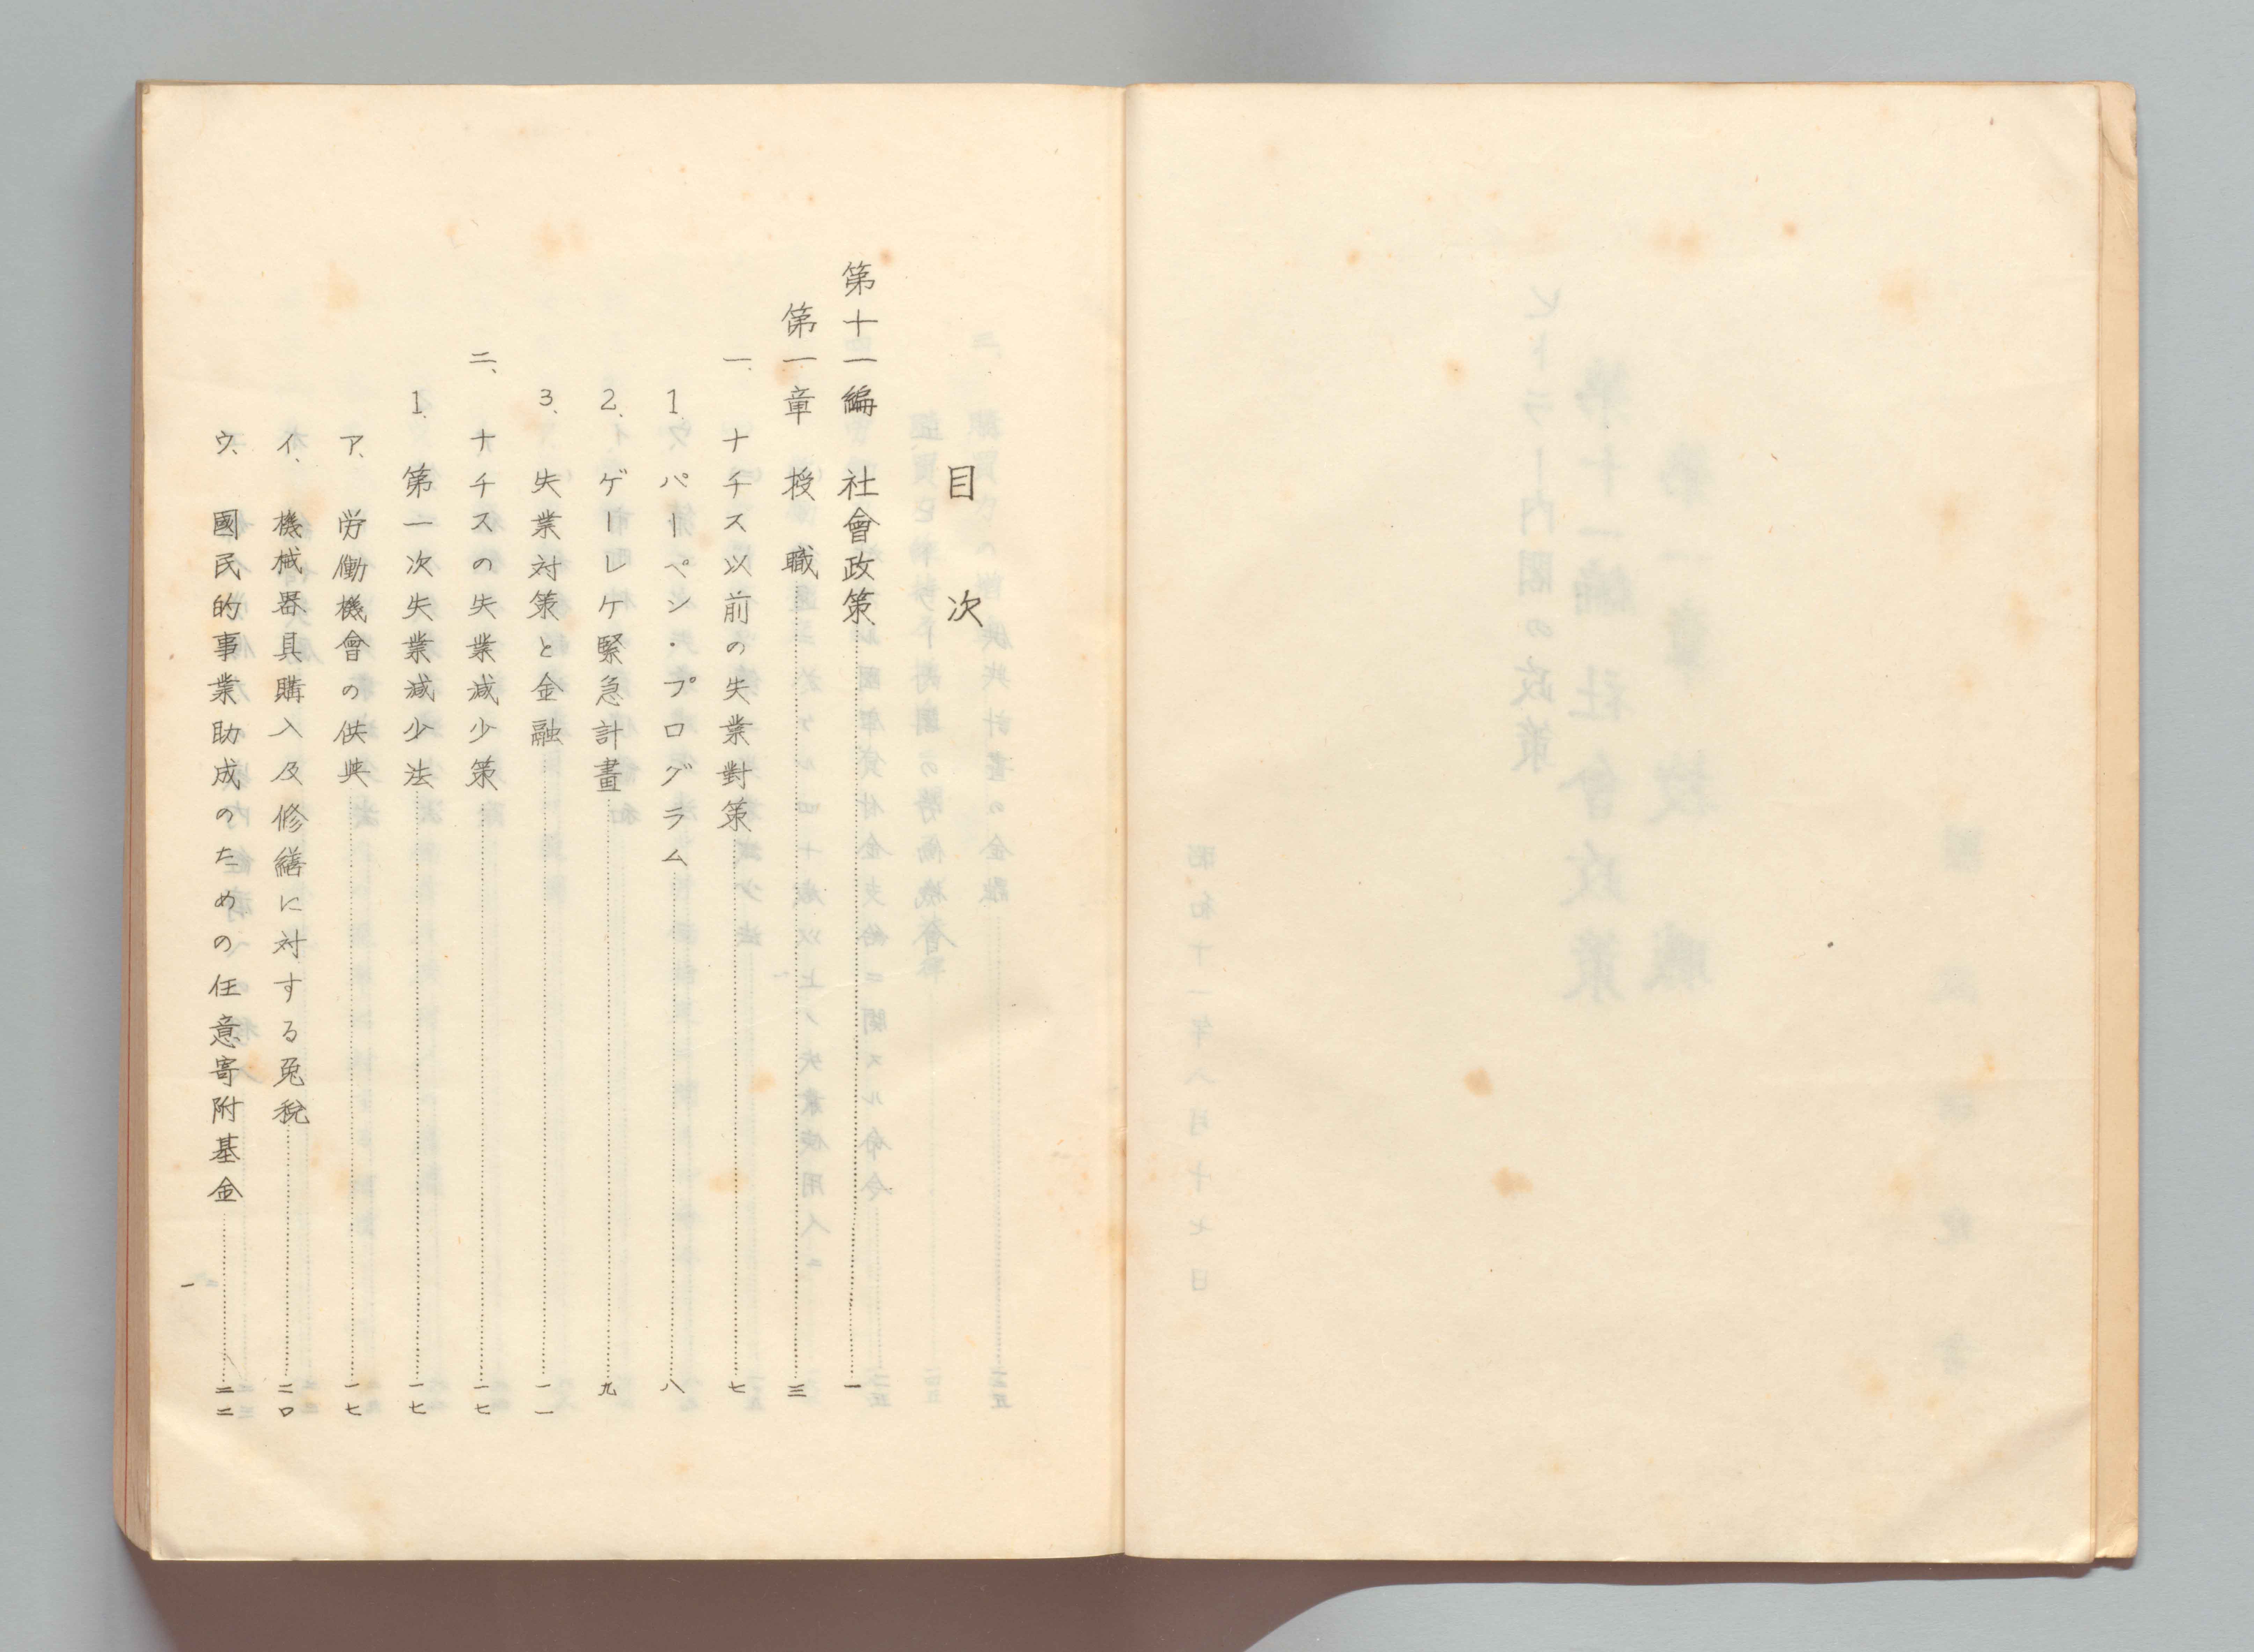 目次
第十一編 社會政策……一
第一章 授職……三
一、ナチス以前の失業對策……七
1. パーペン・プログラム……八
2. ゲーレケ緊急計畫……九
3、失業対策と金融……一一
二、ナチスの失業減少策……一七
1. 第一次失業減少法……一七
ア、労働機會の供與……一七
イ、機械器具購入及修繕に対する免税……二〇
ウ、國民的事業助成のための任意寄附基金……二二
一